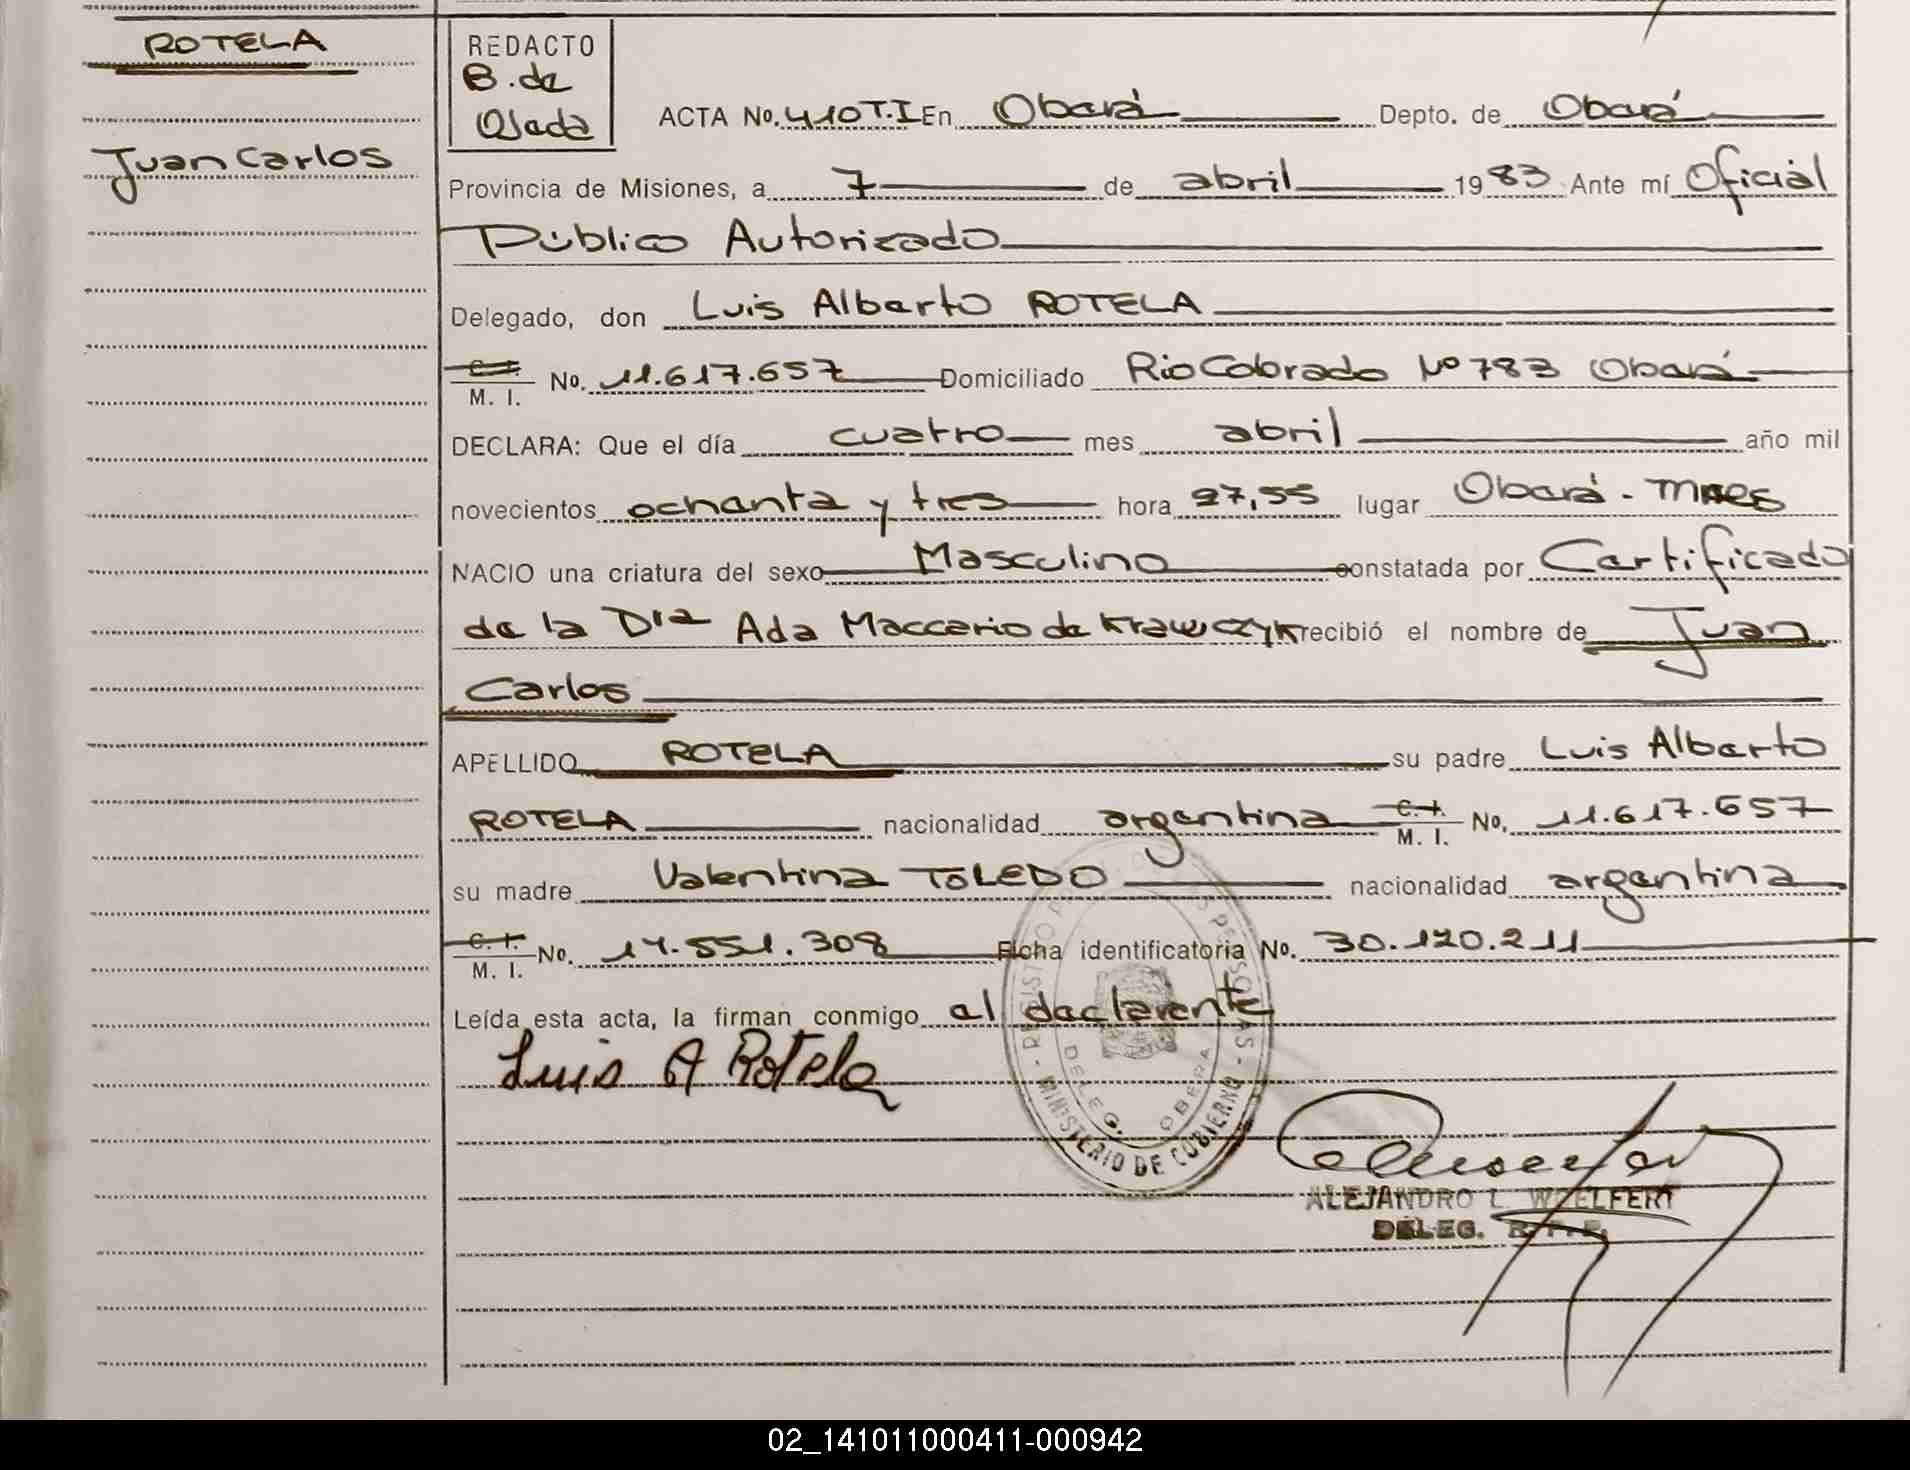 ROTELA
Juan Carlos
REDACTO
B. de
Ojeda
ACTA No. 410 T.I En Oberá Depto. de Oberá
Provincia de Misiones, a 7 de abril 1983 Ante mí Oficial
Público Autorizado
Delegado, don Luis Alberto ROTELA
C. I. M. I. No. 11.617.657 Domiciliado Rio Colorado Nº 783 Oberá
DECLARA: Que el día cuatro mes abril año mil
novecientos ochenta y tres hora lugar Oberá - Mnes
NACIO una criatura del sexo Masculino constatada por Certificado
de la Dra Ada Maccerio de Krawczyk recibió el nombre de Juan
Carlos
APELLIDO ROTELA su padre Luis Alberto
ROTELA nacionalidad argentina C. I. M. I. No. 11.617.657
su madre Valentina TOLEDO nacionalidad argentina
C. I. M. I. No. 14.551.308 Ficha identificatoria No. 30.120.211
Leída esta acta, la firman conmigo el declarente
Luis A Rotela
REGISTRO PERSONAS - MINISTERIO DE GOBIERNO
DELEG. OBERA
ALEJANDRO L. WOELFERT
DELEG. R.P.P.
02_141011000411-000942